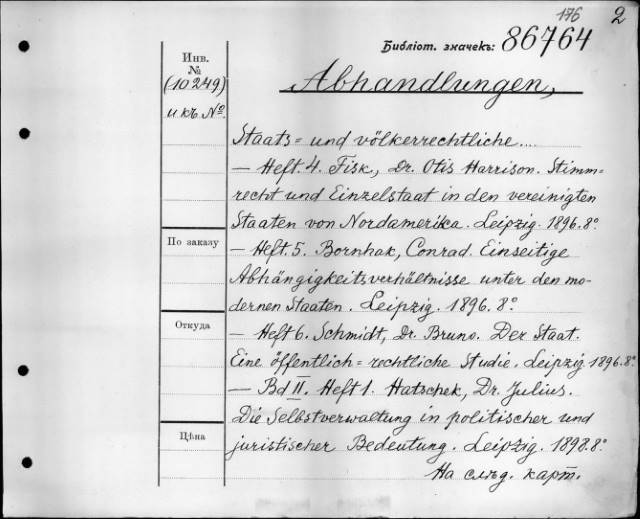 176 2
Библіот. значекъ: 86764
Инв.
№
(10249)
и къ №
По заказу
Откуда
Цѣна
Abhandlungen,
Staats= und völkerrechtliche....
— Heft. 4. Fisk, Dr. Otis Harrison. Stimm=
recht und Einzelstaat in den vereinigten
Staaten von Nordamerika. Leipzig. 1896. 8°.
— Heft. 5. Bornhak, Conrad. Einseitige
Abhängigkeitsverhältnisse unter den mo-
dernen Staaten. Leipzig. 1896. 8°.
— Heft 6. Schmidt, Dr. Bruno. Der Staat.
Eine öffentlich=rechtliche Studie. Leipzig. 1896. 8°.
— Bd II. Heft 1. Hatschek, Dr. Julius.
Die Selbstverwaltung in politischer und
juristischer Bedeutung. Leipzig. 1898. 8°.
На слѣд. карт.